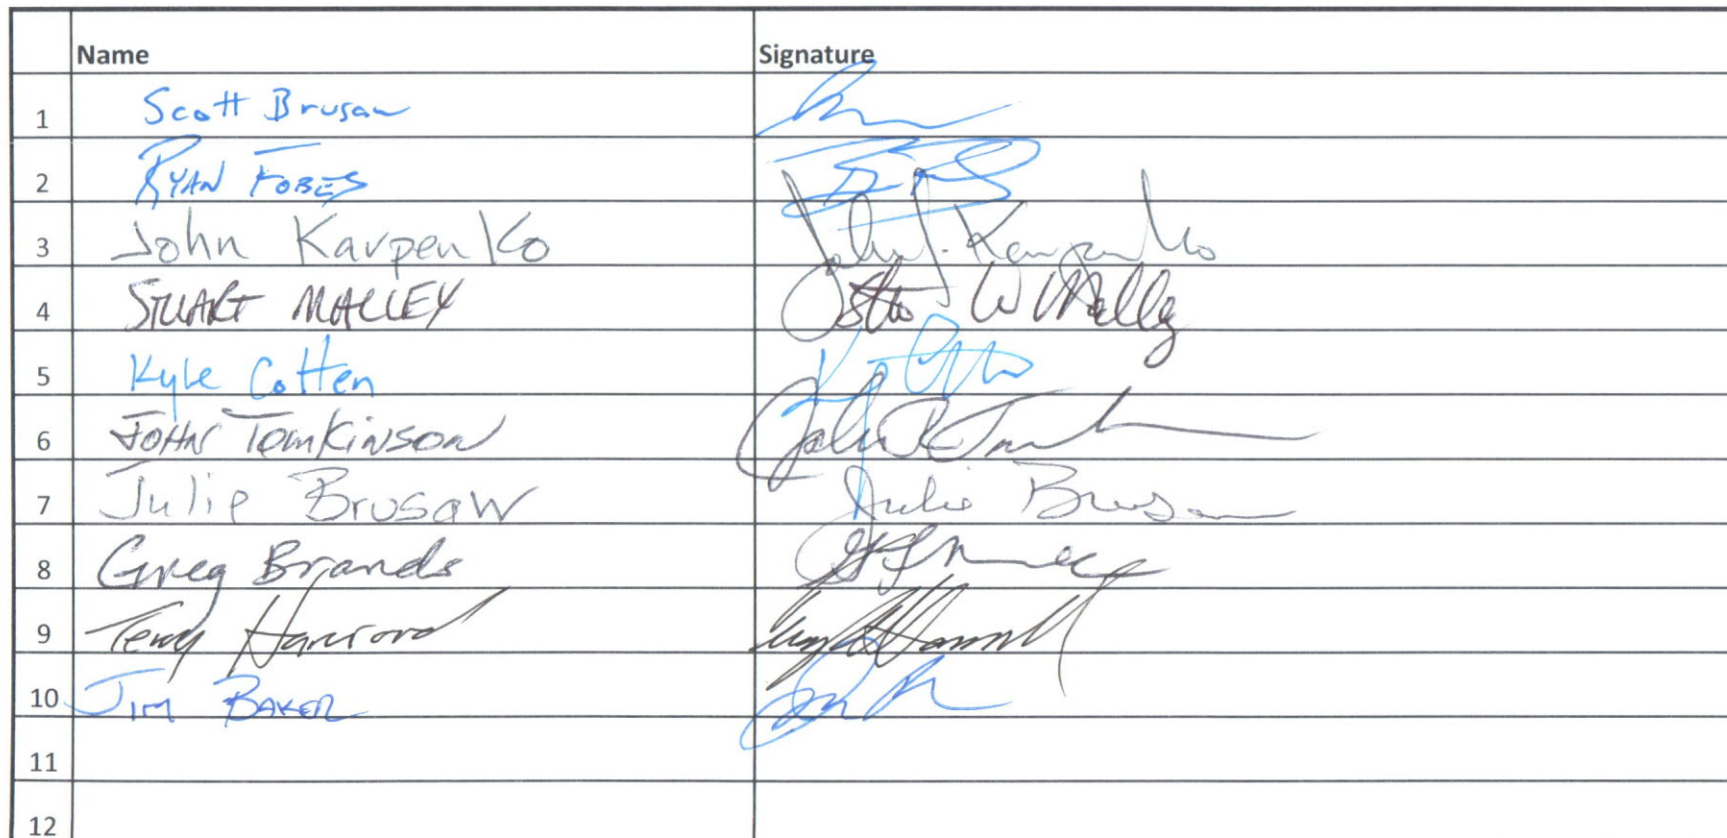 Name Signature
1 Scott Brusaw
2 RYAN FOBES
3 John Karpenko John J. Karpenko
4 STUART MALLEY W Malley
5 Kyle Cotten
6 JOHN TomKinson John R
7 Julie Brusaw Julie Brusaw
8 Greg Brands
9 Terry
10 JIM BAKER
11
12